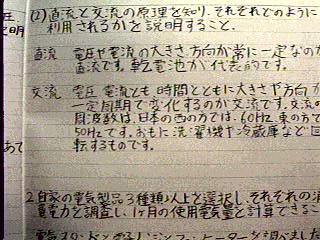 (2)直流と交流の原理を知り、それぞれどのように
利用されるかを説明すること。
直流 電圧や電流の大きさ、方向が常に一定なのが
直流です。乾電池が代表的です。
交流 電圧、電流とも、時間とともに大きさや方向が
一定周期で変化するのが交流です。交流の
周波数は、日本の西の方では、60Hz、東の方で
50Hzです。おもに洗濯機や冷蔵庫など回
転するものです。
2.自家の電気製品3種類以上を選択し、それぞれの消
費電力を調査し、1ヶ月の使用電気量を計算できるこ